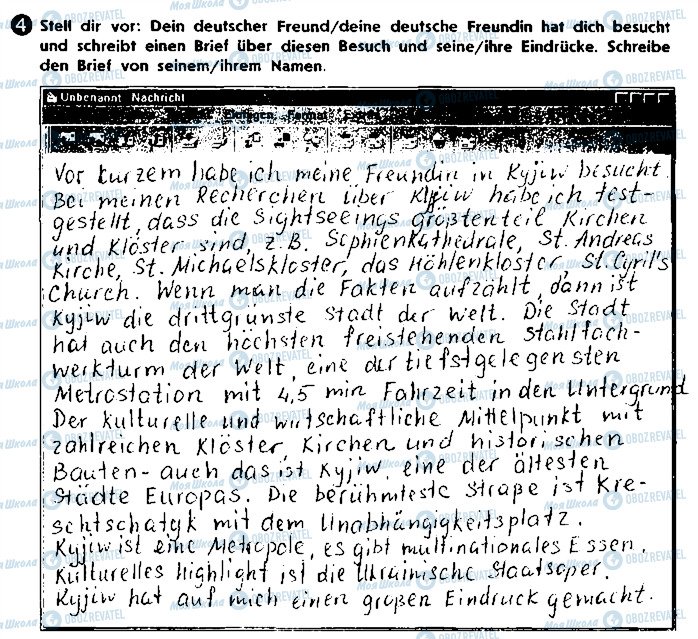 4 Stell dir vor: Dein deutscher Freund/deine deutsche Freundin hat dich besucht
und schreibt einen Brief über diesen Besuch und seine/ihre Eindrücke. Schreibe
den Brief von seinem/ihrem Namen.
Unbenannt Nachricht
Einfügen Format
Vor kurzem habe ich meine Freundin in Kyjiw besucht.
Bei meinen Recherchen über Kyjiw habe ich fest-
gestellt, dass die Sightseeings größtenteil Kirchen
und Klöster sind, z.B. Sophienkathedrale, St. Andreas
Kirche, St. Michaelskloster, das Höhlenkloster, St. Cyril's
Church. Wenn man die Fakten aufzählt, dann ist
Kyjiw die drittgrünste Stadt der Welt. Die Stadt
hat auch den höchsten freistehenden Stahlfach-
werkturm der Welt, eine der tiefstgelegensten
Metrostation mit 4,5 min Fahrzeit in den Untergrund
Der kulturelle und wirtschaftliche Mittelpunkt mit
zahlreichen Klöster, Kirchen und historischen
Bauten - auch das ist Kyjiw, eine der ältesten
Städte Europas. Die berühmteste Straße ist Kre-
schtschatyk mit dem Unabhängigkeitsplatz.
Kyjiw ist eine Metropole, es gibt multinationales Essen,
Kulturelles Highlight ist die Ukrainische Staatsoper.
Kyjiw hat auf mich einen großen Eindruck gemacht.